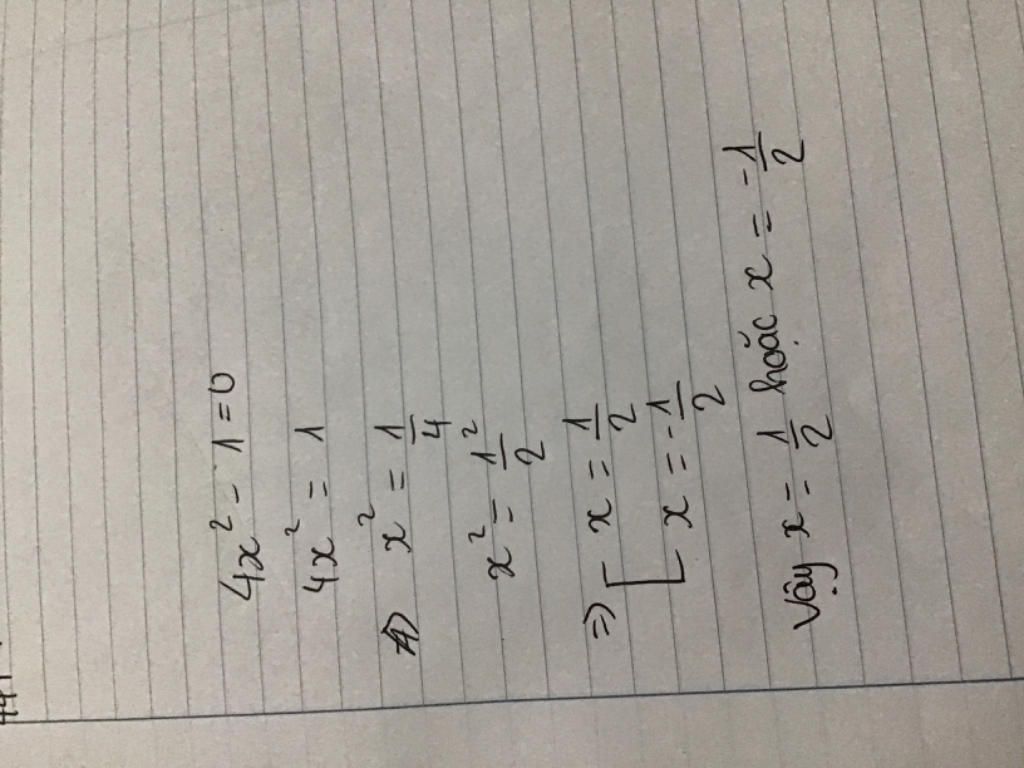 4x² - 1 = 0
4x² = 1
x² = 1/4
x² = 1²/2
=> [ x = 1/2
x = -1/2
Vậy x = 1/2 hoặc x = -1/2